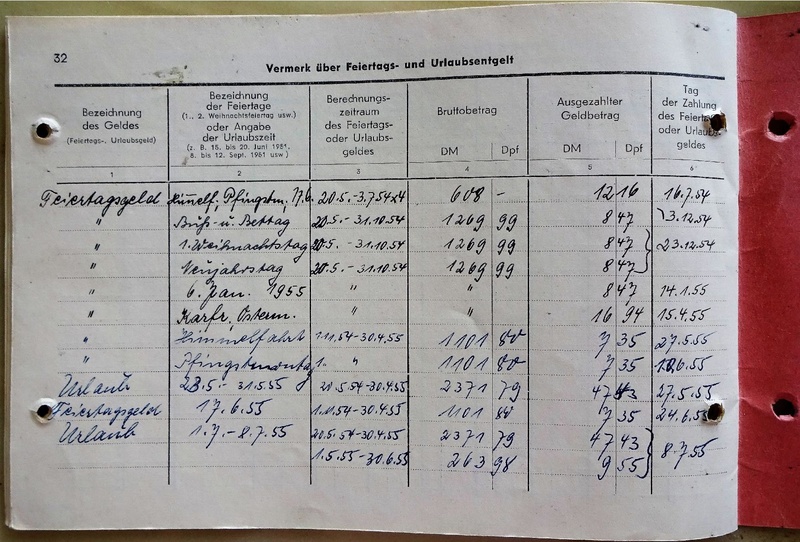 32
Vermerk über Feiertags- und Urlaubsentgelt
Bezeichnung des Geldes (Feiertags-, Urlaubsgeld)
Bezeichnung der Feiertage (1., 2. Weihnachtsfeiertag usw.) oder Angabe der Urlaubszeit (z. B. 15. bis 20. Juni 1951, 8. bis 12. Sept. 1951 usw.)
Berechnungszeitraum des Feiertags- oder Urlaubsgeldes
Bruttobetrag DM Dpf
Ausgezahlter Geldbetrag DM Dpf
Tag der Zahlung des Feiertags- oder Urlaubsgeldes
1 2 3 4 5 6
Feiertagsgeld Himmelf., Pfingstm. 17.6. 20.5.-3.7.54 608 - 12 16 16.7.54
" Buß- u. Bettag 20.5.-31.10.54 1269 99 8 47 3.12.54
" 1. Weihnachtstag 20.5.-31.10.54 1269 99 8 47 23.12.54
" Neujahrstag 20.5.-31.10.54 1269 99 8 47
" 6. Jan. 1955 " " 8 47 14.1.55
" Karfr., Osterm. 16 94 15.4.55
" Himmelfahrt 1.11.54-30.4.55 1101 80 7 35 27.5.55
" Pfingstmontag 1. " 1101 80 7 35 6.55
Urlaub 23.5.-31.5.55 20.5.54-30.4.55 2371 79 47 43 27.5.55
Feiertagsgeld 17.6.55 54-30.4.55 1101 80 7 35 24.6.55
Urlaub 1.7.-8.7.55 20.5.54-30.4.55 2371 79 47 43 8.7.55
1.5.55-30.6.55 263 98 9 55